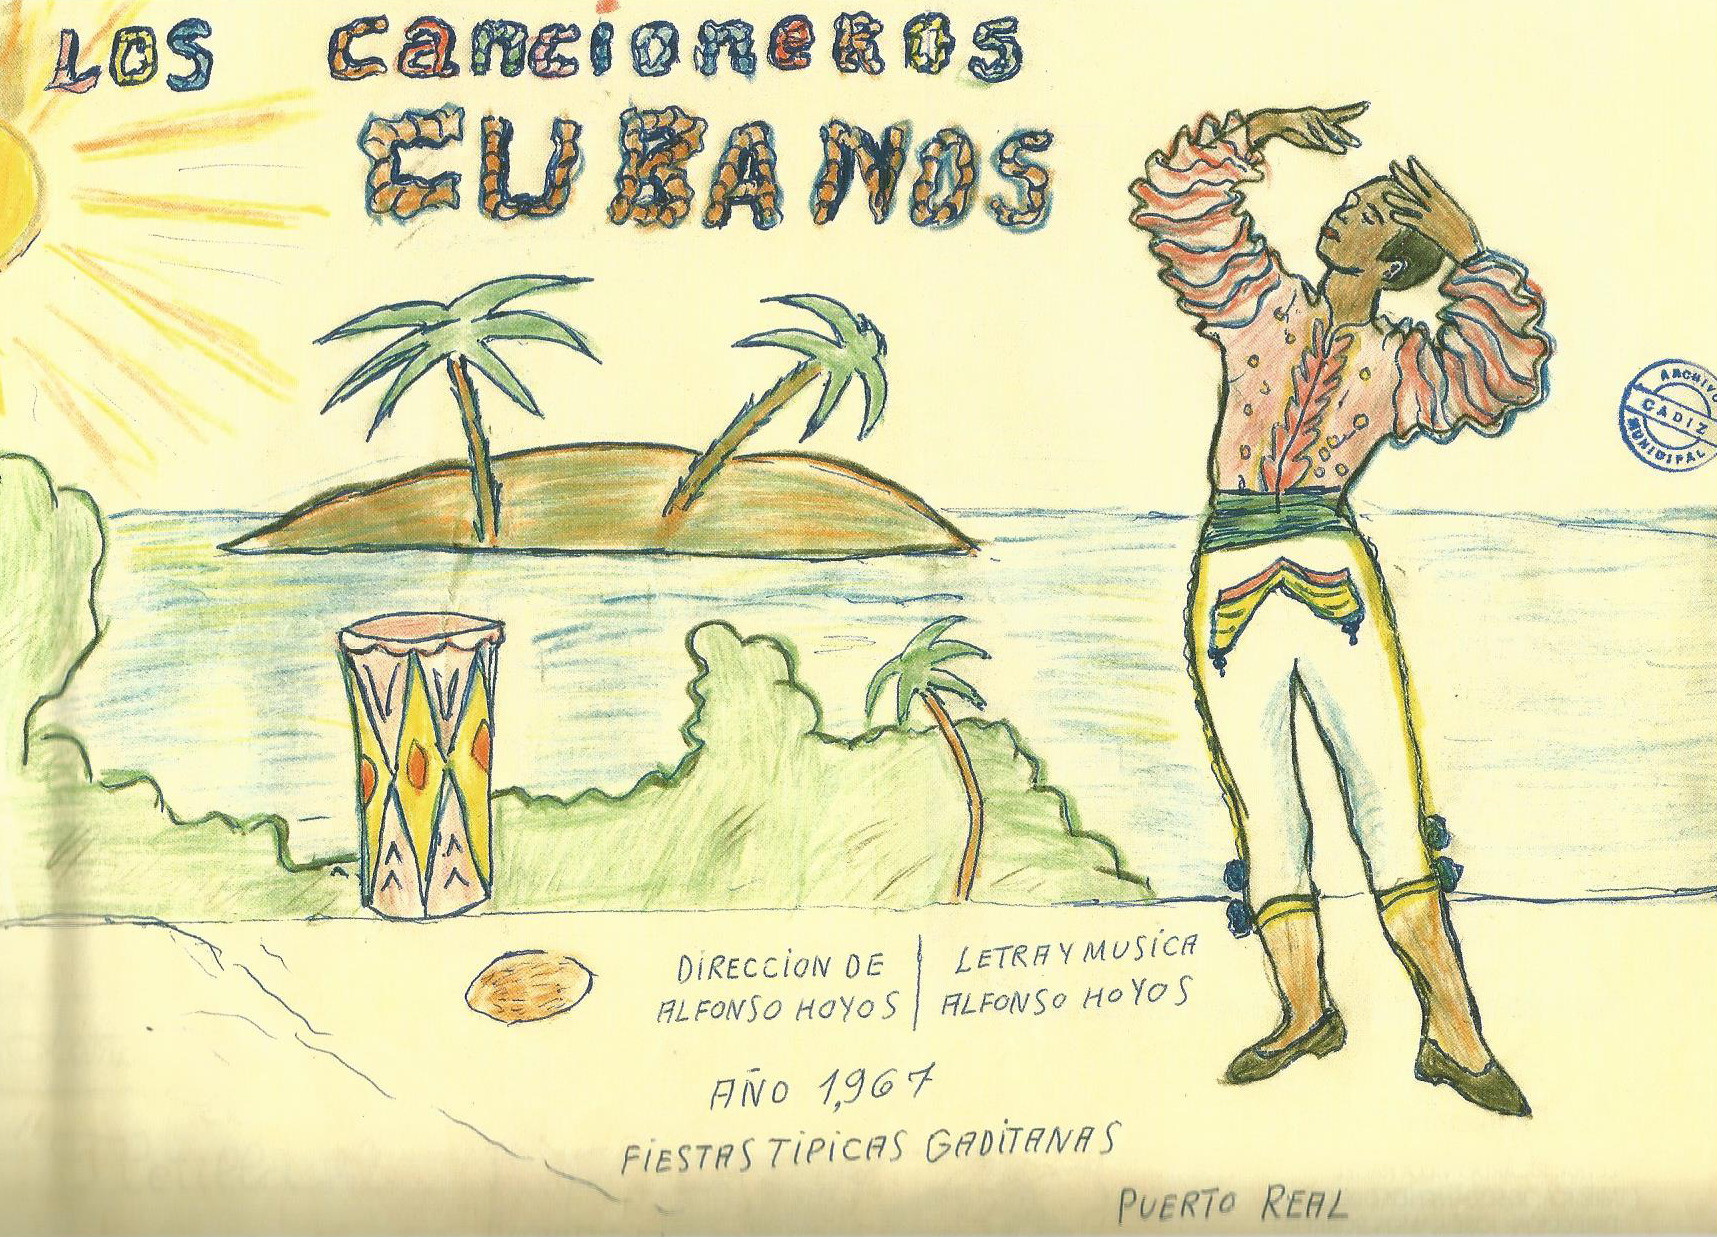 LOS CANCIONEROS
CUBANOS
ARCHIVO
CADIZ
MUNICIPAL
DIRECCION DE
ALFONSO HOYOS
LETRA Y MUSICA
ALFONSO HOYOS
AÑO 1,967
FIESTAS TIPICAS GADITANAS
PUERTO REAL